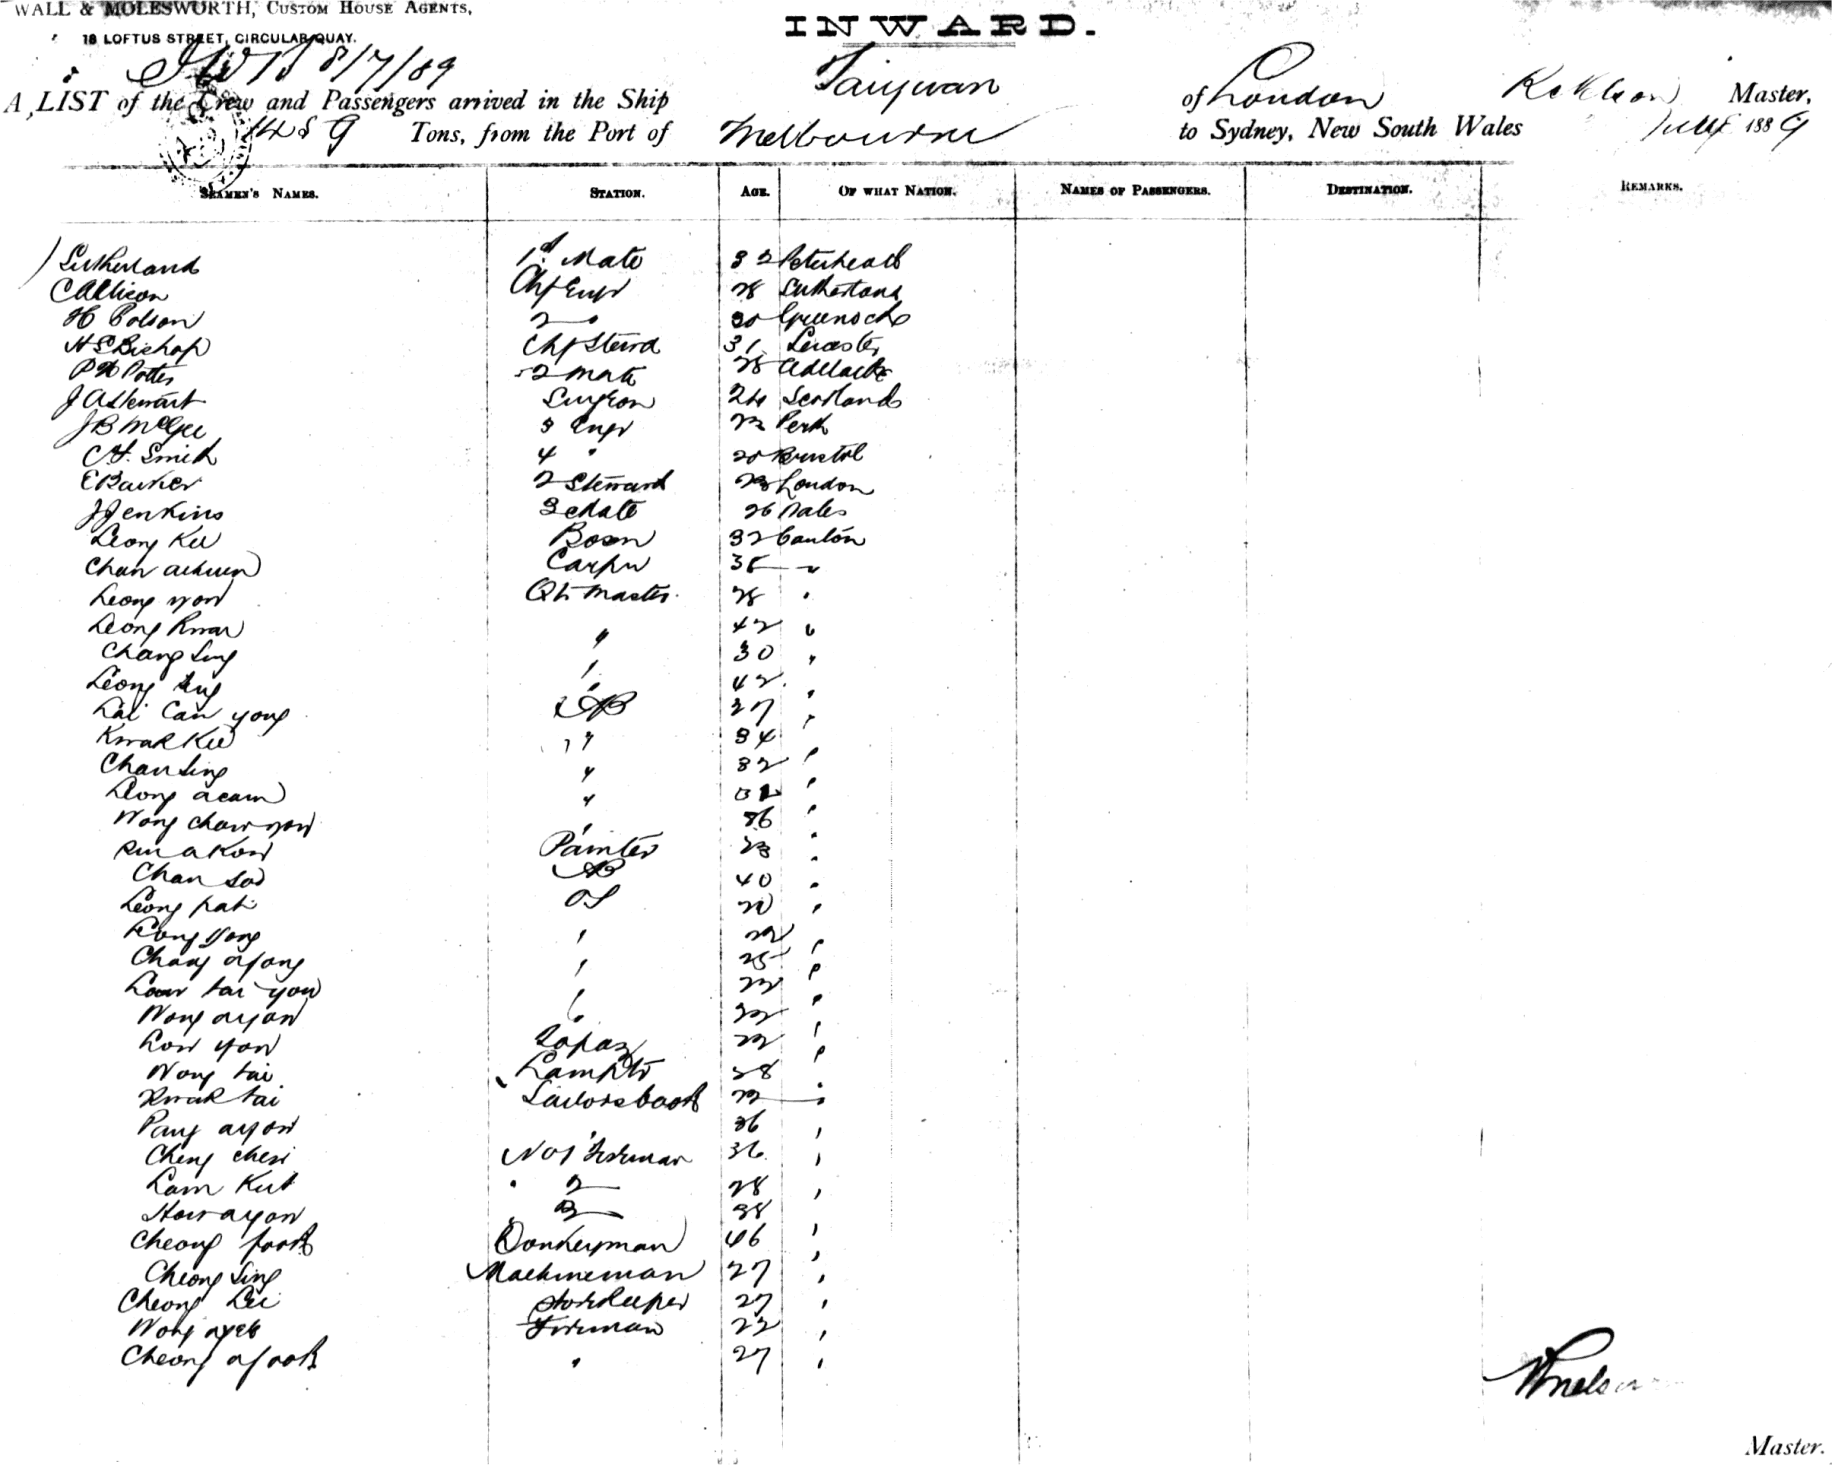 WALL & MOLESWORTH, CUSTOM HOUSE AGENTS,
18 LOFTUS STREET, CIRCULAR QUAY.
INWARD.
8/7/89
A LIST of the Crew and Passengers arrived in the Ship Taiyuan of London Master,
1459 Tons, from the Port of Melbourne to Sydney, New South Wales July 1889
SEAMEN'S NAMES. STATION. AGE. OF WHAT NATION. NAMES OF PASSENGERS. DESTINATION. REMARKS.
Sutherland 1st Mate 32 Peterhead
C Allison Chf Engr 28 Sutherland
H Polson 2 " 30 Greenock
H S Bishop Chf Steward 31 Leicester
P H Potter 2 Mate 28 Adelaide
J A Stewart Surgeon 24 Scotland
J B McGee 3 Engr 22 Perth
C H. Smith 4 " 20 Bristol
E Barker 2 Steward 23 London
J Jenkins 3 Mate 26 Wales
Leong Kee Bosn 32 Canton
Chan Carptr 35 "
Leong yow Qr Master. 28 "
Leong Kwai " 42 "
Chang Sing " 30 "
Leong " 42 "
Lai Can yong AB 27 "
Kwak Kee " 34 "
Chan Sing " 32 "
Leong acam " "
Wong Chaw yow " 36 "
akow Painter 23 "
Chan Soo AB 40 "
Leong pak OS "
Leong yong " 22 "
Chang afong " 25 "
Low tai you " 22 "
Wong ayow " 22 "
Low yow Topaz 22 "
Wong tai Lamptr 28 "
Kwak tai Sailorscook 22 "
Pang ayow 36 "
Cheng chew No 1 Fireman 36 "
Lam Kut " 2 28 "
How ayow " 3 38 "
Cheong fook Donkeyman 46 "
Cheong Sing Machineman 27 "
Cheong Lee Storekeeper 27 "
Wong ayek Fireman 22 "
Cheong afook " 27 "
Nelson
Master.